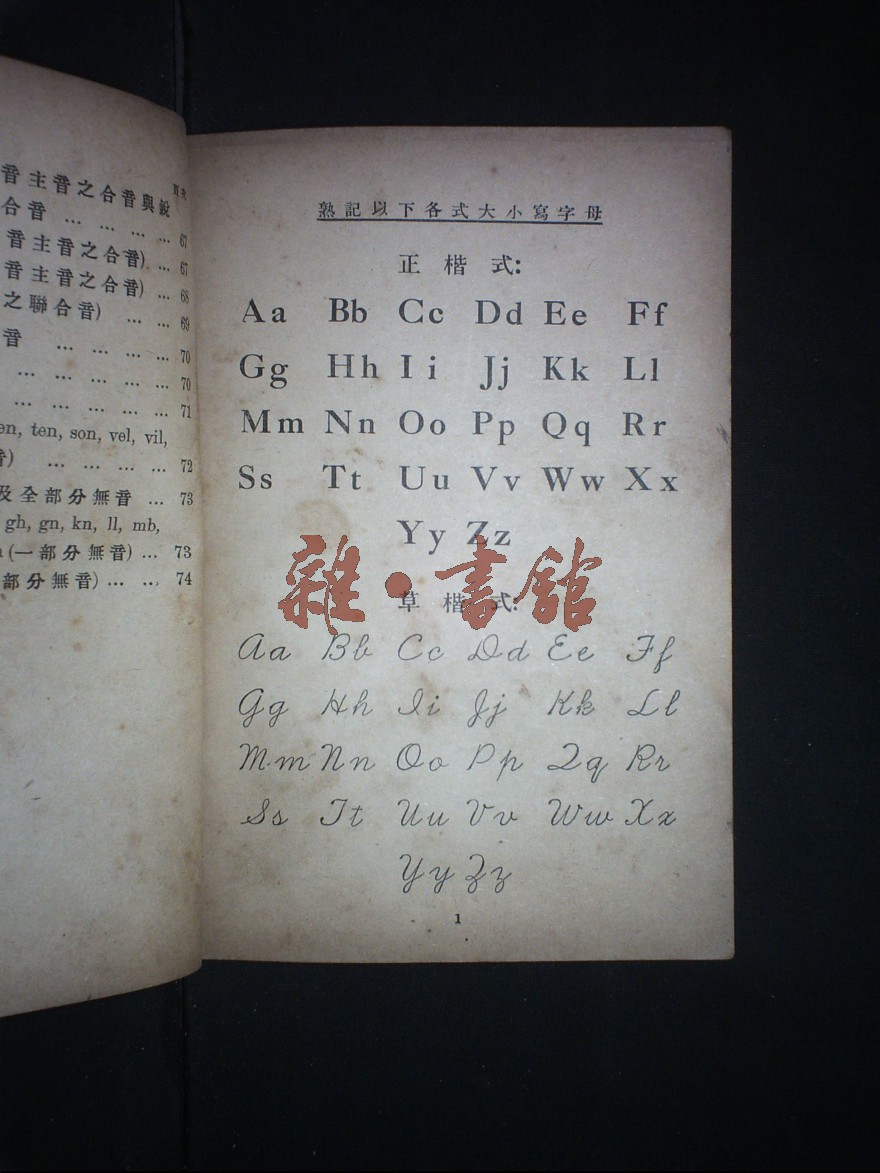 音主音之合音與銳
頁次
合音 … … … … 67
音主音之合音) … 67
音主音之合音) … 68
之聯合音) … … 69
音 … … … … … 70
… … … … … … 70
… … … … … … 71
en, ten, son, vel, vil,
音) … … … … … 72
及全部分無音 … 73
gh, gn, kn, ll, mb,
(一部分無音) … 73
部分無音) … … 74
熟記以下各式大小寫字母
正楷式:
Aa Bb Cc Dd Ee Ff
Gg Hh Ii Jj Kk Ll
Mm Nn Oo Pp Qq Rr
Ss Tt Uu Vv Ww Xx
Yy Zz
雜·書館
草楷式:
Aa Bb Cc Dd Ee Ff
Gg Hh Ii Jj Kk Ll
Mm Nn Oo Pp Qq Rr
Ss Tt Uu Vv Ww Xx
Yy Zz
1